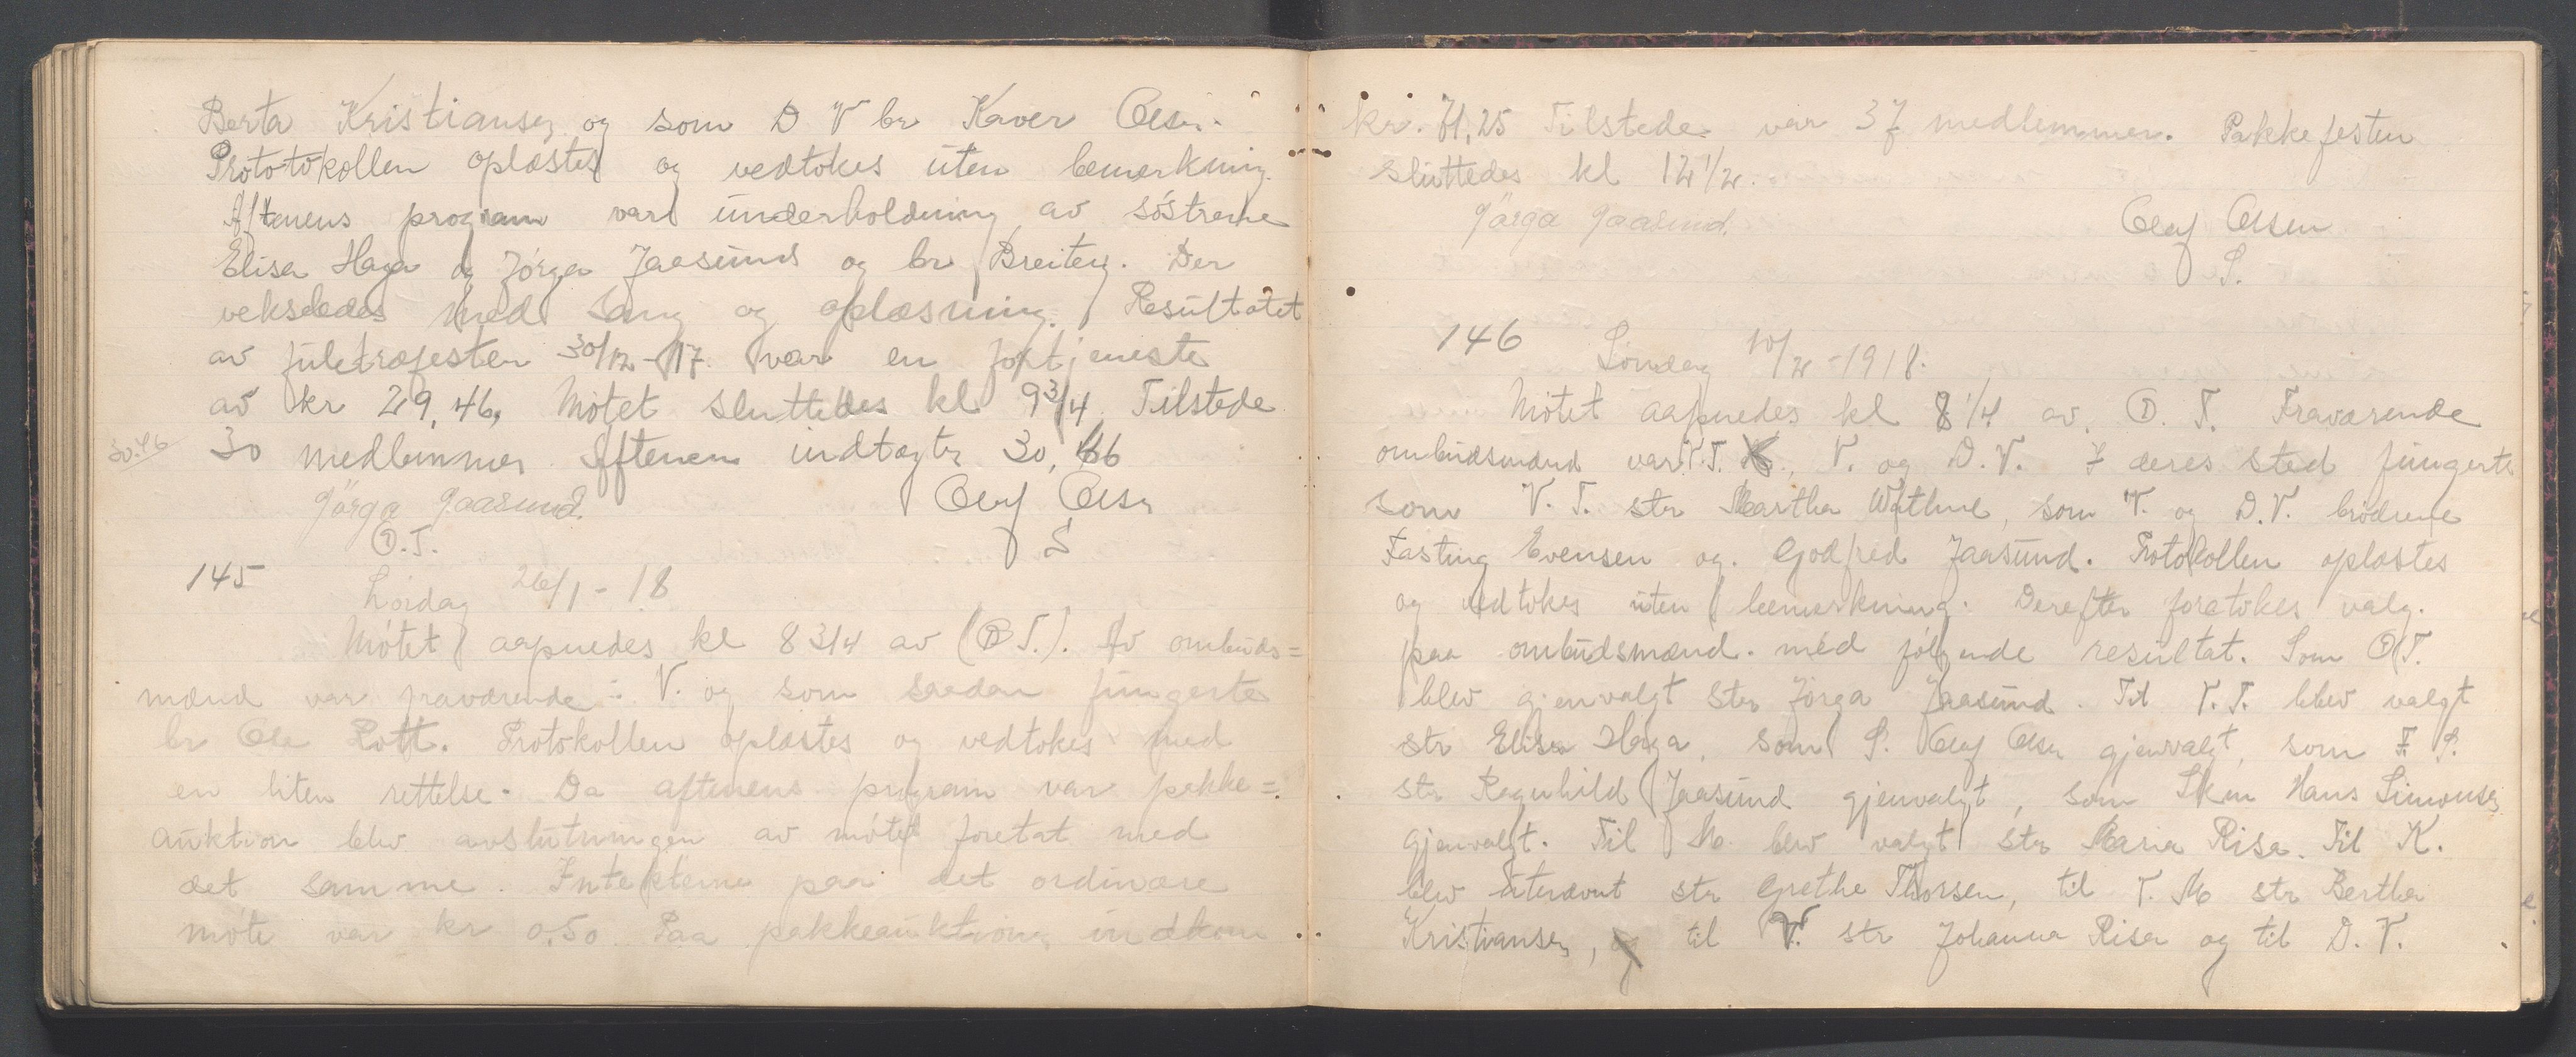 Berta Kristiansen og som D V br Kaver Olsen.
Prototokollen oplæstes og vedtokes uten bemerkning.
Aftenens program var underholdning av søstrene
Elisa Haga og Jørga Jaasund og br Breiten. Der
vekseledes med Sang og oplæsning. Resultatet
av juletræfesten 30/12-17 var en fortjeneste
av kr 29,46, Møtet sluttedes kl 9 3/4 Tilstede
30.46
30 medlemmer Aftenens indtægter 30,46
Jørga Jaasund. Olaf Olsen
D.T. S
145 Lørdag 26/1-18
Møtet aapnedes kl 8 3/4 av (D T.). Av ombuds=
mænd var fraværende: V. og som saadan fungerte
br Ole Rott. Protokollen oplæstes og vedtokes med
en liten rettelse. Da aftenens program var pakke=
auktion blev avslutningen av møtet foretat med
det samme. Intektene paa det ordinære
møte var kr 0,50. Paa pakkeauktionen indkom
kr. 71,25 Tilstede var 37 medlemmer. Pakkefesten
sluttedes kl 12 1/2.
Jørga Jaasund. Olaf Olsen
S.
146 Søndag 10/2-1918.
Møtet aapnedes kl 8 1/4 av D. T. Fraværende
ombudsmænd var V.T., V. og D.V. I deres sted fungerte
som V. T. str Martha Wathne, som V. og D.V. brødrene
Fasting Evensen og. Godfred Jaasund. Protokollen oplæstes
og vedtokes uten bemerkning. Derefter foretokes valg.
paa ombudsmænd. med følgende resultat. Som D.T.
blev gjenvalgt str Jørga Jaasund. Til V.T. blev valgt
str Elisa Haga, som S. Olaf Olsen gjenvalgt, som F S.
str Ragnhild Jaasund gjenvalgt, som Skm Hans Simonsen
gjenvalgt. Til M. blev valgt str Maria Risa. Til K.
blev utnævnt str Grethe Thorsen, til V. M str Bertha
Kristiansen, og til V. str Johanna Risa og til D. V.